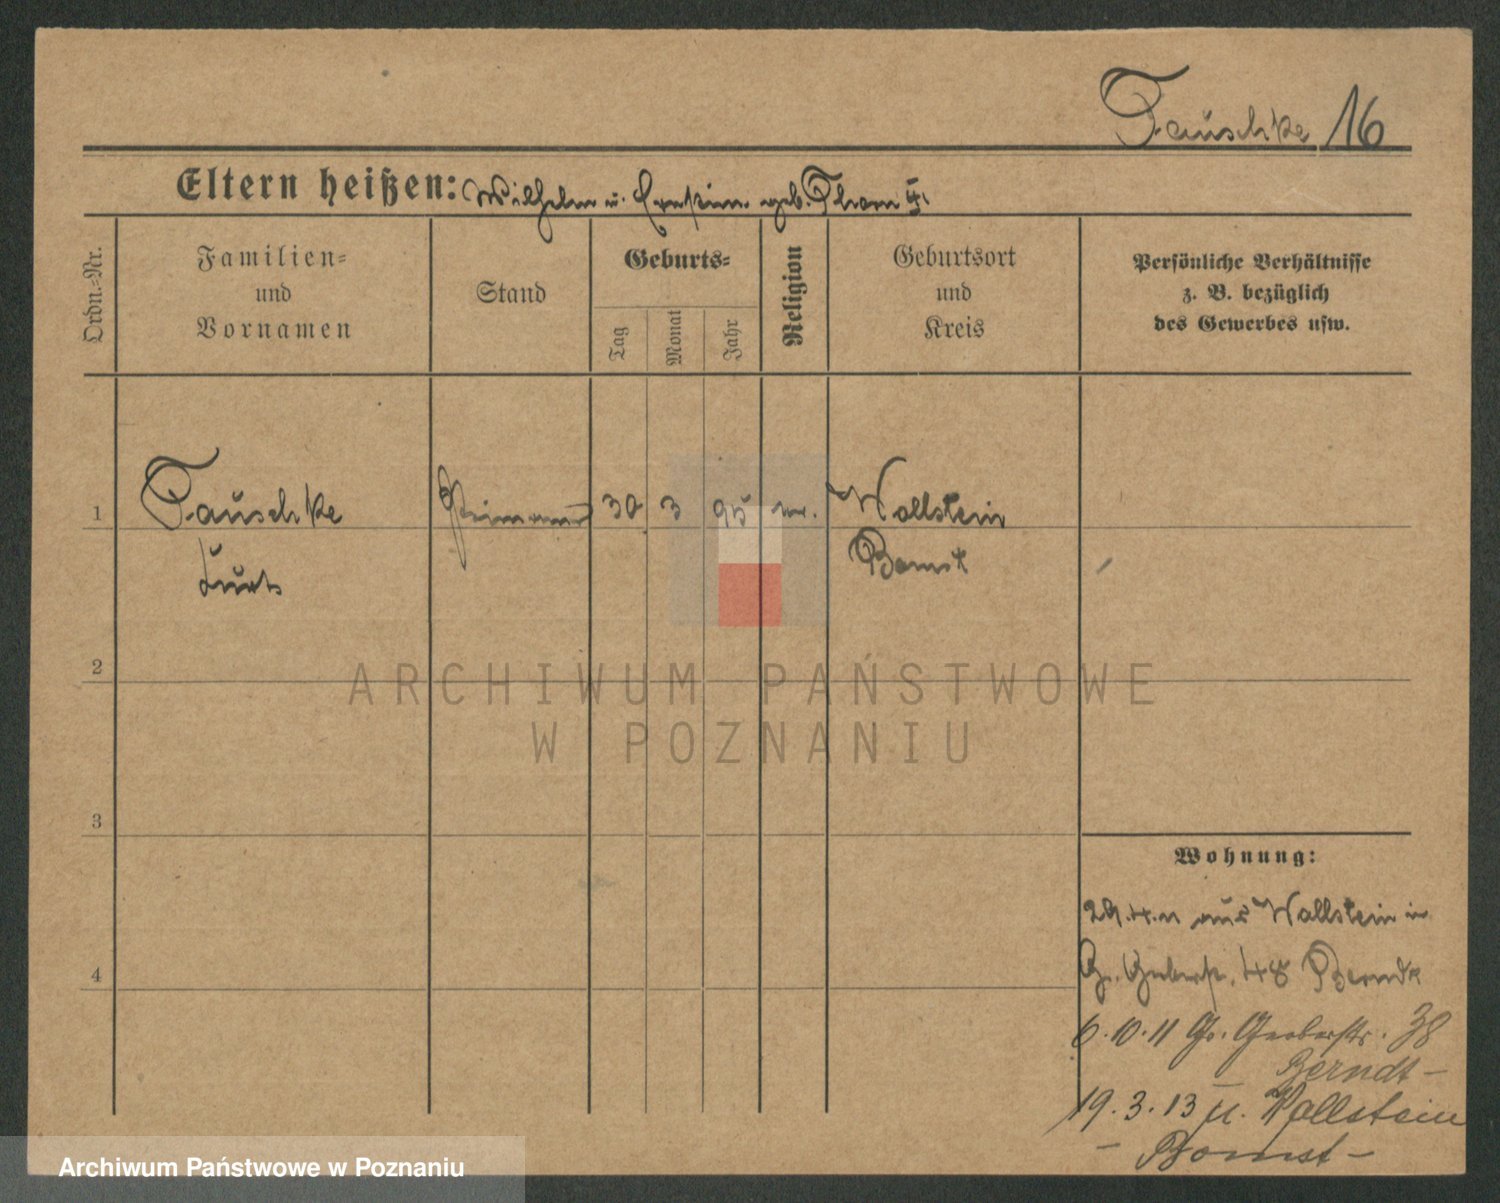 Tauschke 16
Eltern heißen: Wilhelm u. Ernestine geb. Thom
Ordn.-Nr.
Familien-
und
Vornamen
Stand
Geburts-
Tag
Monat
Jahr
Religion
Geburtsort
und
Kreis
Persönliche Verhältnisse
z. B. bezüglich
des Gewerbes usw.
1 Tauschke 30 3 95 Wollstein
Kurt Bomst
2
3
4
Wohnung:
29.4.11 aus Wollstein in
Gr. Gerberstr. 48 Berndt
6.10.11 Gr. Gerberstr. 38
Berndt –
19.3.13 n. Wollstein
– Bomst –
ARCHIWUM PAŃSTWOWE
W POZNANIU
Archiwum Państwowe w Poznaniu